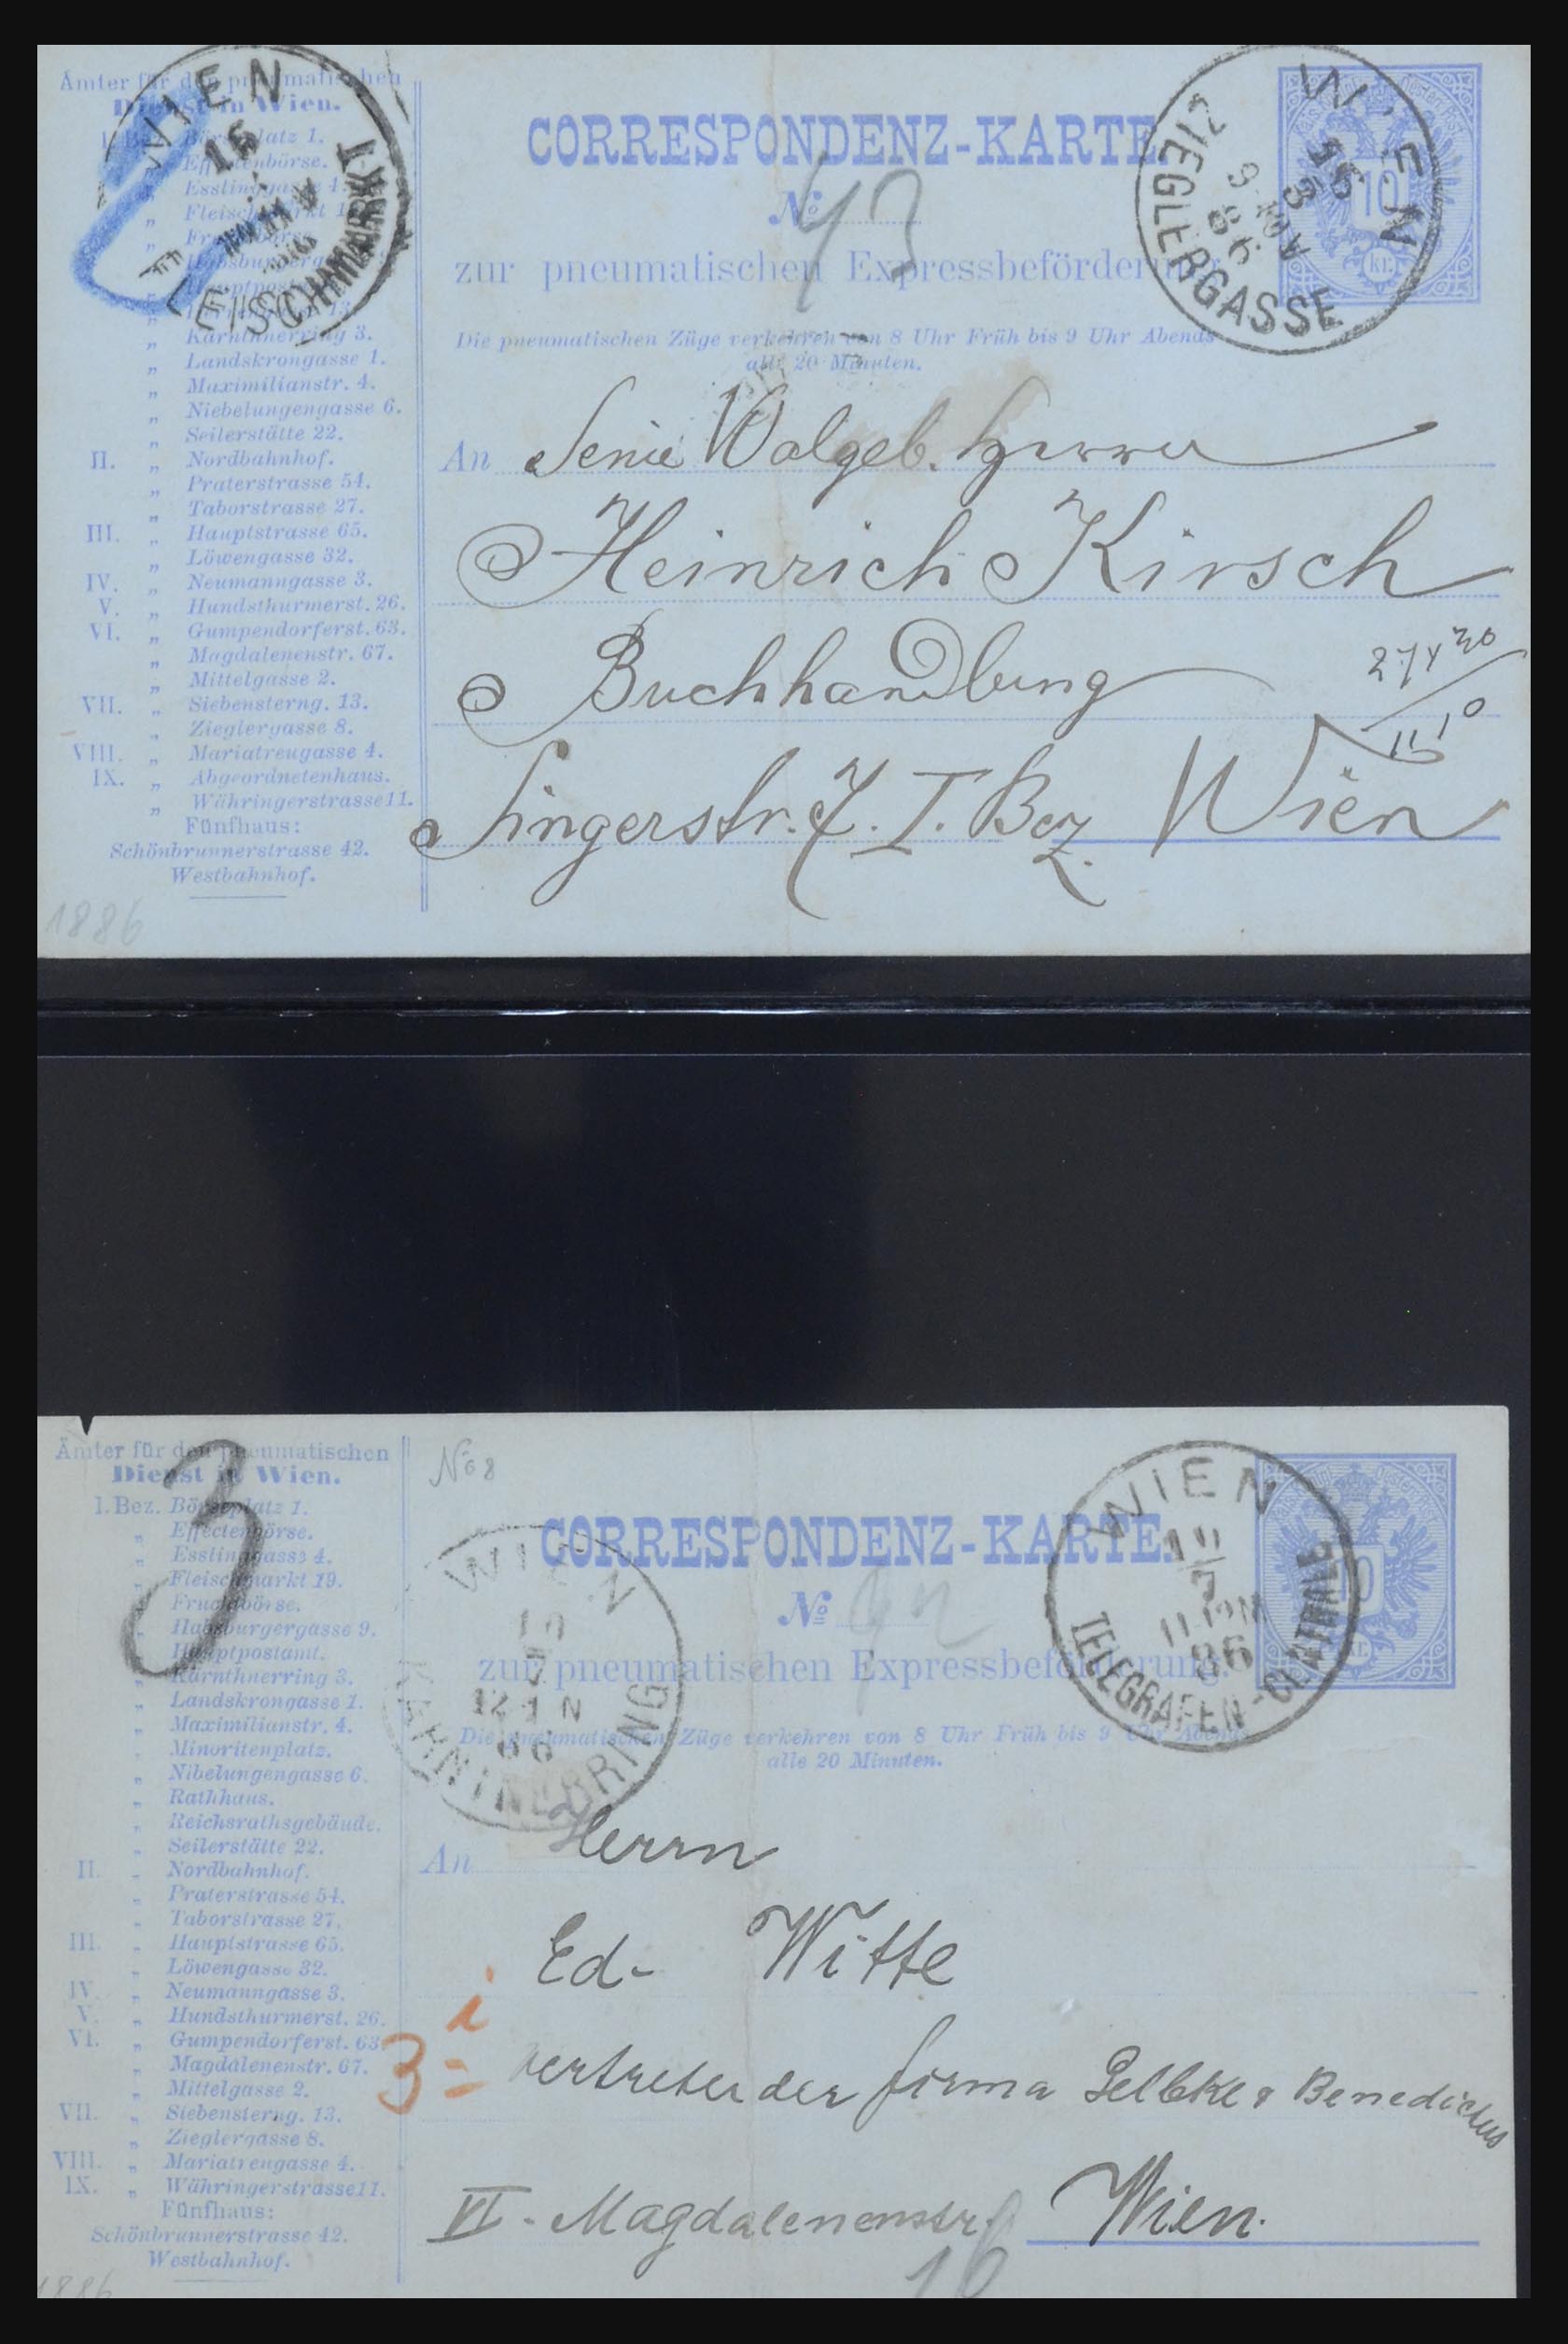 Ämter für den pneumatischen
Dienst in Wien.
I. Bez. Börseplatz 1.
„ Effectenbörse.
„ Esslinggasse 4.
„ Fleischmarkt
„
„ Habsburgerg
„ Hauptpost
„
„ Kärnthnerring 3.
„ Landskrongasse 1.
„ Maximilianstr. 4.
„ Niebelungengasse 6.
„ Seilerstätte 22.
II. „ Nordbahnhof.
„ Praterstrasse 54.
„ Taborstrasse 27.
III. „ Hauptstrasse 65.
„ Löwengasse 32.
IV. „ Neumanngasse 3.
V. „ Hundsthurmerst. 26.
VI. „ Gumpendorferst. 63.
„ Magdalenenstr. 67.
„ Mittelgasse 2.
VII. „ Siebensterng. 13.
„ Zieglergasse 8.
VIII. „ Mariatreugasse 4.
IX. „ Abgeordnetenhaus.
„ Währingerstrasse 11.
Fünfhaus:
Schönbrunnerstrasse 42.
Westbahnhof.
1886
WIEN
15
FLEISCHMARKT
CORRESPONDENZ-KARTE
No 43
zur pneumatischen Expressbeförderung
Die pneumatischen Züge verkehren von 8 Uhr Früh bis 9 Uhr Abends
alle 20 Minuten.
WIEN
15
3
9-10 V
86
ZIEGLERGASSE
10
kr.
An Seine Wolgeb. Herrn
Heinrich Kirsch
Buchhandlung
Singerstr. 7. I. Bez. Wien
Ämter für den pneumatischen
Dienst in Wien.
I. Bez. Börseplatz 1.
„ Effectenbörse.
„ Esslinggasse 4.
„ Fleischmarkt 19.
„ Fruchtbörse.
„ Habsburgergasse 9.
„ Hauptpostamt.
„ Kärnthnerring 3.
„ Landskrongasse 1.
„ Maximilianstr. 4.
„ Minoritenplatz.
„ Nibelungengasse 6.
„ Rathhaus.
„ Reichsrathsgebäude.
„ Seilerstätte 22.
II. „ Nordbahnhof.
„ Praterstrasse 54.
„ Taborstrasse 27.
III. „ Hauptstrasse 65.
„ Löwengasse 32.
IV. „ Neumanngasse 3.
V. „ Hundsthurmerst. 26.
VI. „ Gumpendorferst. 63
„ Magdalenenstr. 67.
„ Mittelgasse 2.
VII. „ Siebensterng. 13.
„ Zieglergasse 8.
VIII. „ Mariatreugasse 4.
IX. „ Währingerstrasse 11.
Fünfhaus:
Schönbrunnerstrasse 42.
Westbahnhof.
1886
3
No 8
CORRESPONDENZ-KARTE.
No
zur pneumatischen Expressbeförderung.
Die pneumatischen Züge verkehren von 8 Uhr Früh bis 9 Uhr Abends
alle 20 Minuten.
WIEN
12-1 N
KÄRNTNERRING
WIEN
7
86
TELEGRAFEN-CENTRALE
10
kr.
An Herrn
Ed- Witte
3 = Vertreter der Firma & Benedictus
VI. Magdalenenstr. Wien.
16